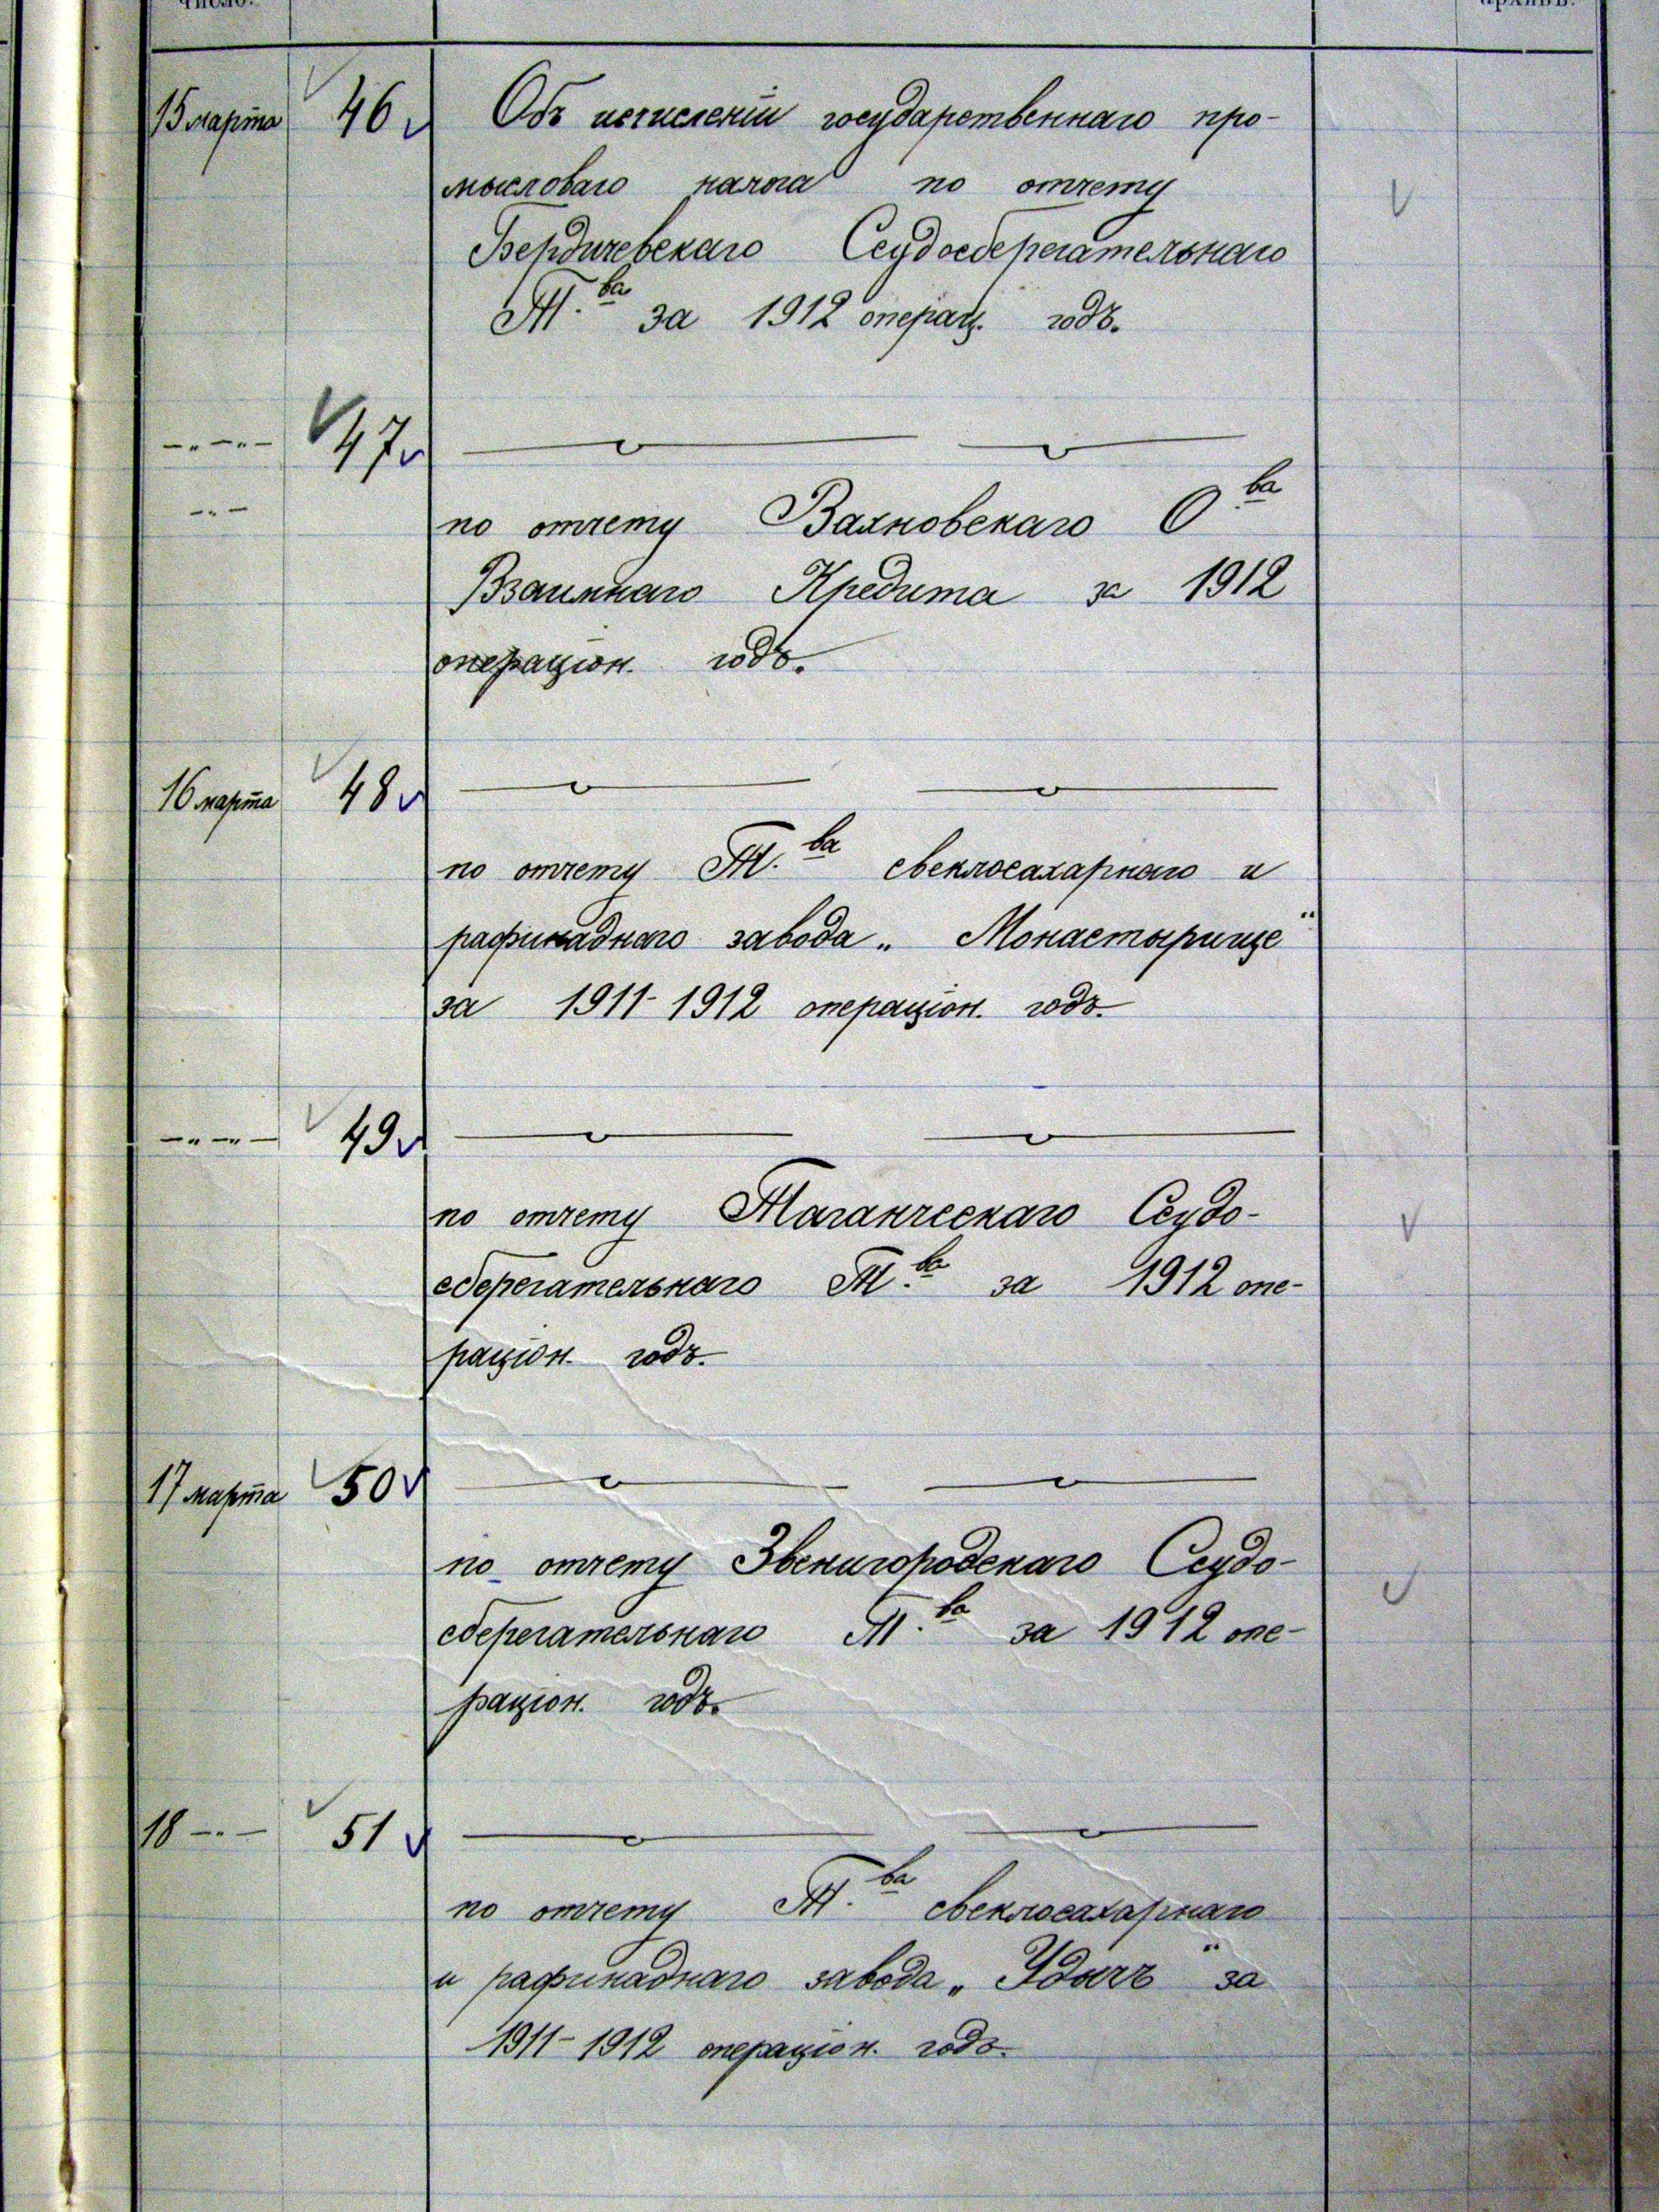 число.
архивъ.
15 марта 46 Объ исчисленіи государственнаго про-
мысловаго налога по отчету
Бердичевскаго Ссудосберегательнаго
Т.ва за 1912 операц. годъ.
—„—„— 47 — —
—„—
по отчету Вахновскаго О ва
Взаимнаго Кредита за 1912
операціон. годъ.
16 марта 48 — —
по отчету Т.ва свеклосахарнаго и
рафинаднаго завода „Монастырище“
за 1911-1912 операціон. годъ.
—„—„— 49 — —
по отчету Таганчсскаго Ссудо-
сберегательнаго Т.ва за 1912 опе-
раціон. годъ.
17 марта 50 — —
по отчету Звенигородскаго Ссудо-
сберегательнаго Т.ва за 1912 опе-
раціон. годъ.
18 —„— 51 — —
по отчету Т.ва свеклосахарнаго
и рафинаднаго завода „Удычъ“ за
1911-1912 операціон. годъ.